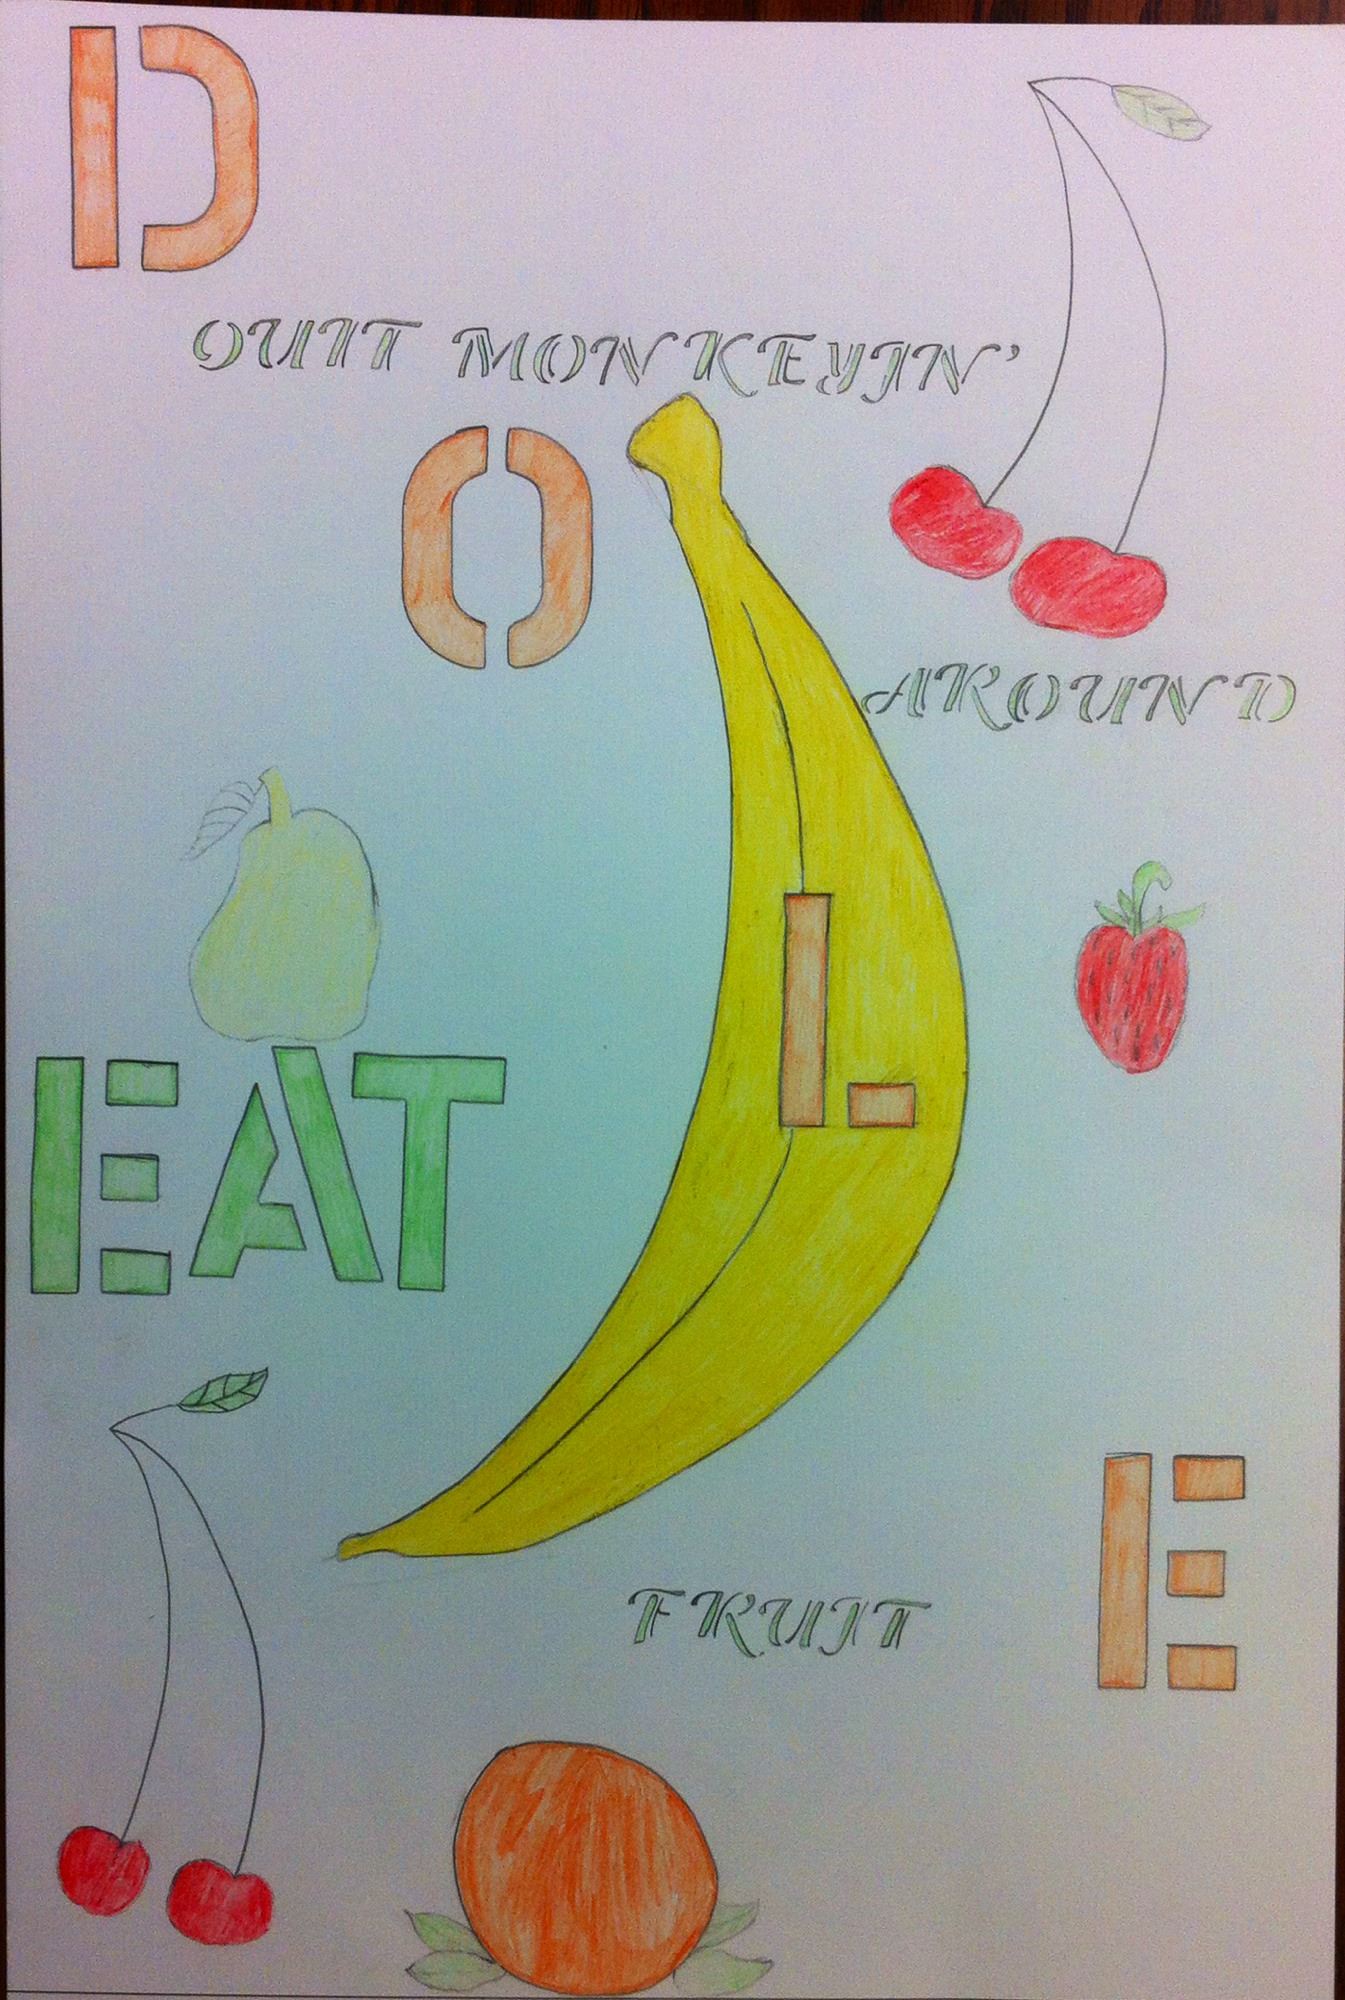 D
QUIT MONKEYIN'
O
AROUND
L
EAT
E
FRUIT